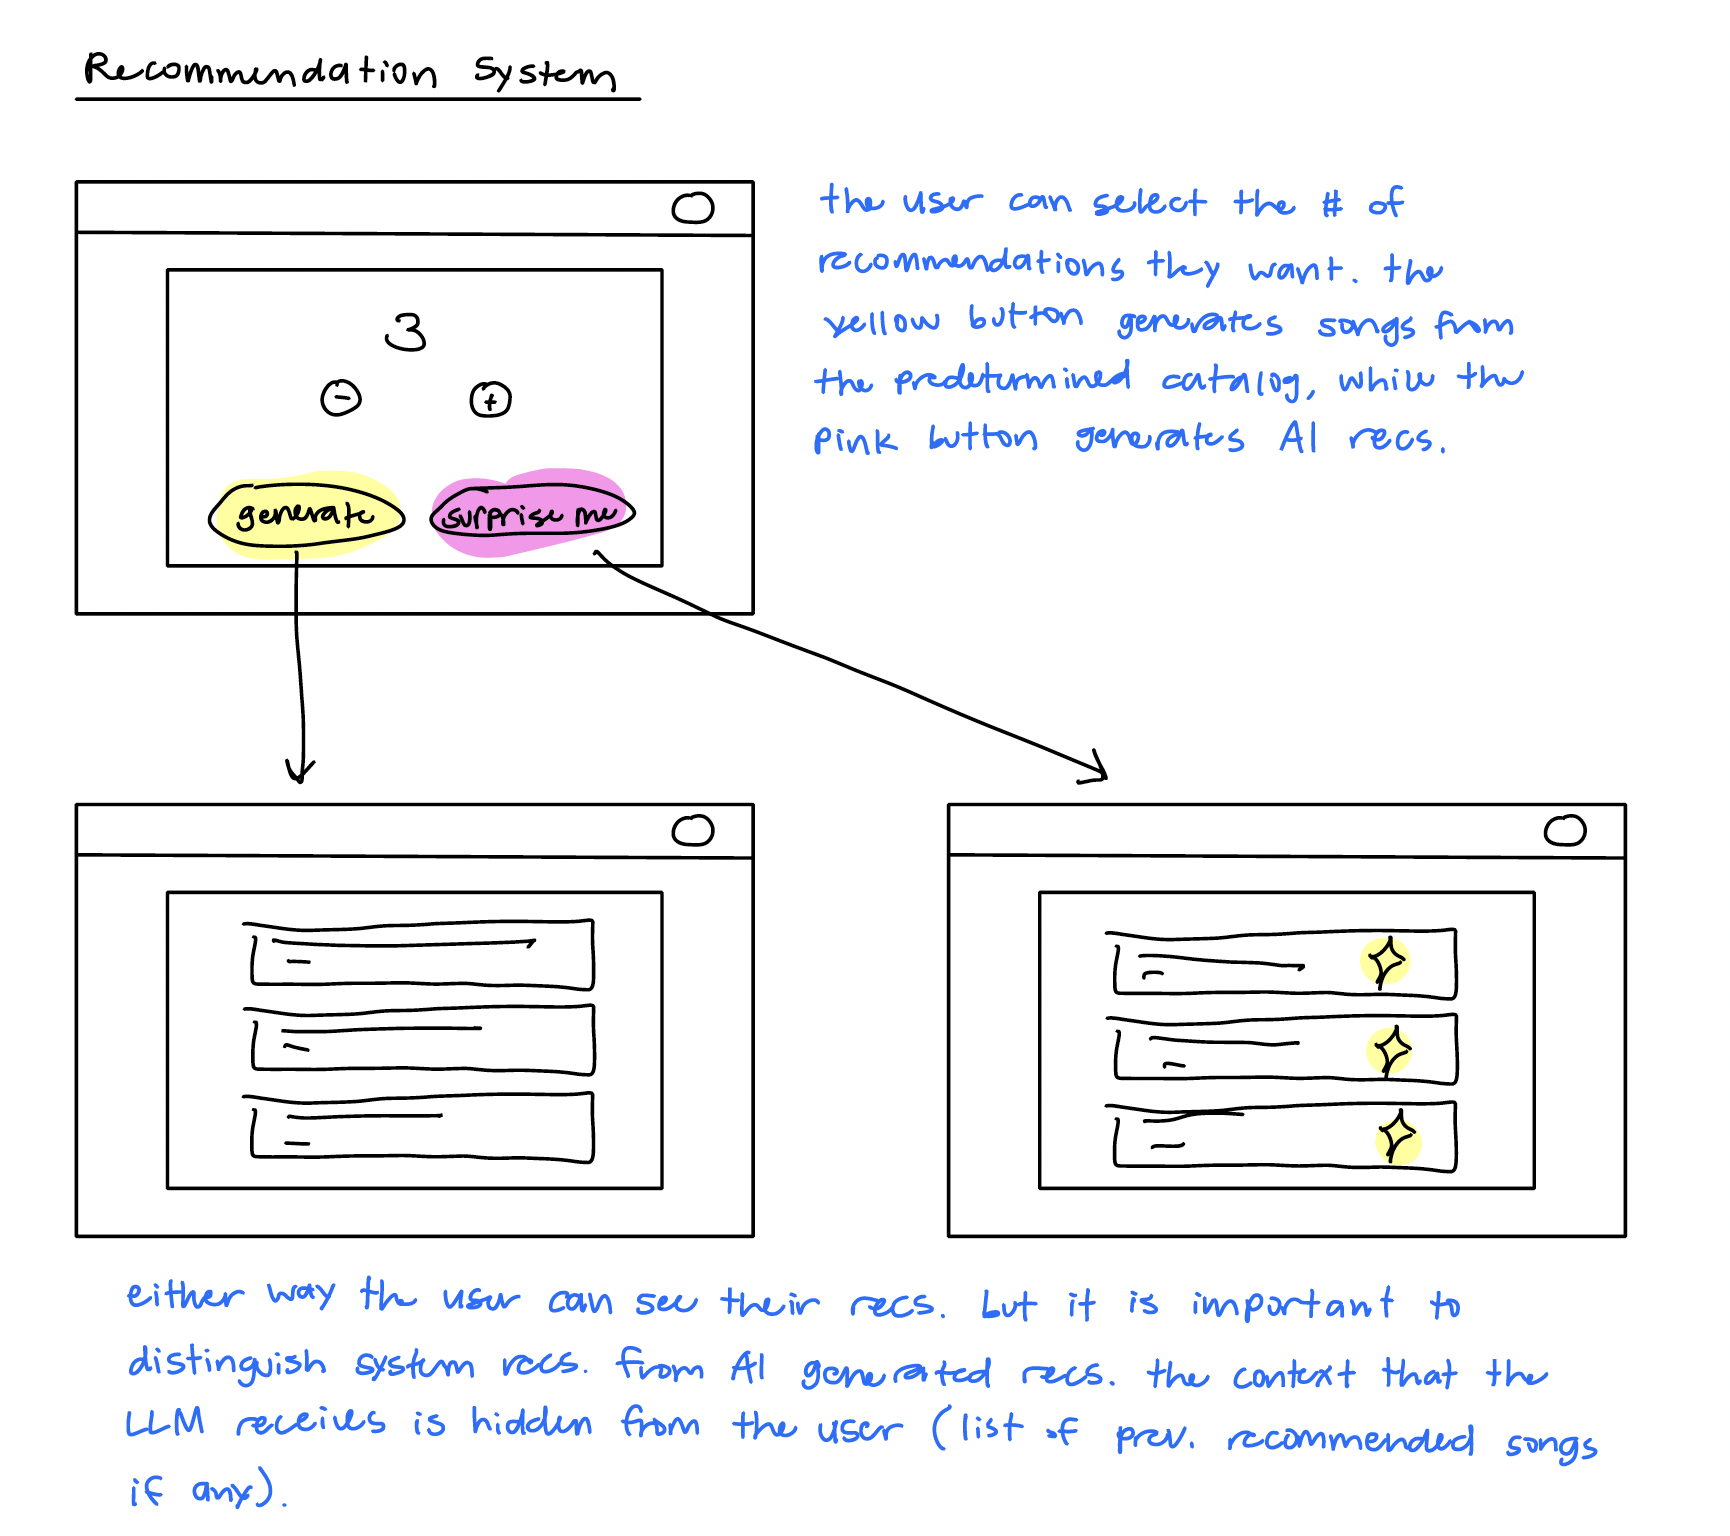 Recommendation System
the user can select the # of
recommendations they want. the
yellow button generates songs from
the predetermined catalog, while the
pink button generates AI recs.
3
- +
generate surprise me
either way the user can see their recs. but it is important to
distinguish system recs. from AI generated recs. the context that the
LLM receives is hidden from the user (list of prev. recommended songs
if any).